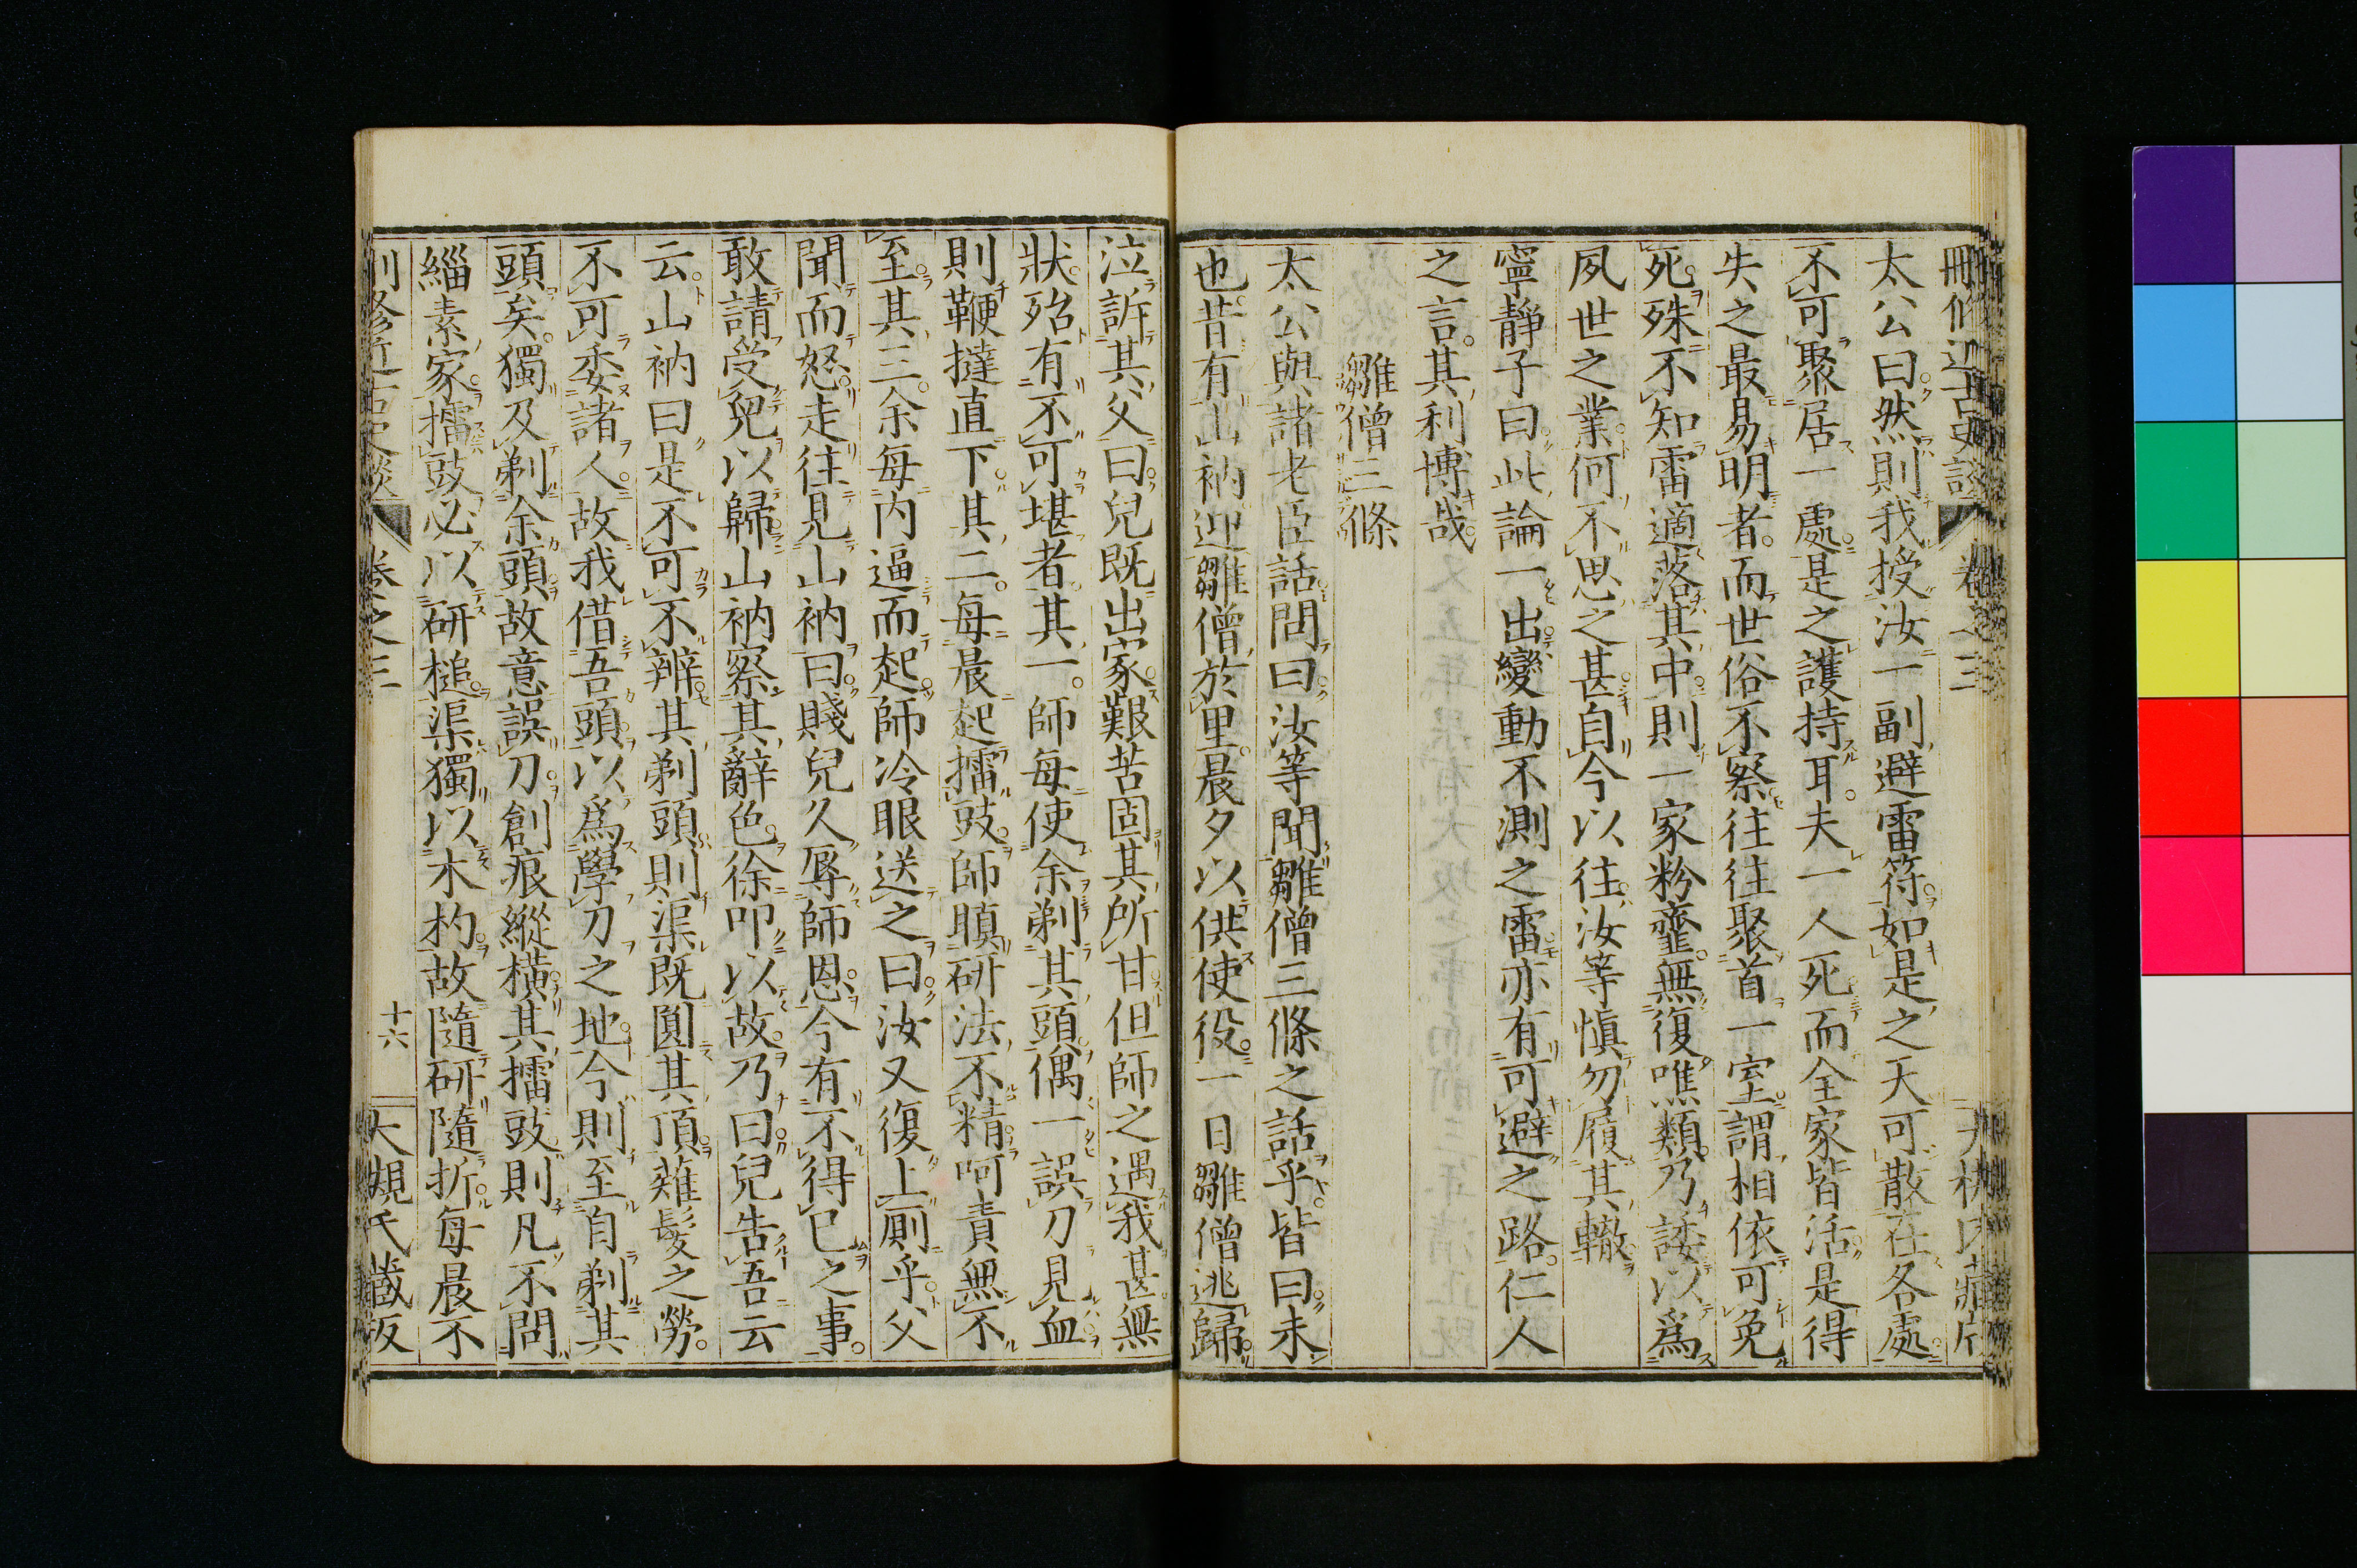 刪修近古史談 卷之三 大槻氏藏版
太公曰然則我授汝一副避雷符如是之天可散在各處
不可聚居一處是之護持耳夫一人死而全家皆活是得
失之最易明者而世俗不察往往聚首一室謂相依可免
死殊不知雷適落其中則一家粉虀無復噍類乃諉以爲
夙世之業何不思之甚自今以往汝等愼勿履其轍
寧靜子曰此論一出變動不測之雷亦有可避之路仁人
之言其利博哉
雛僧三條
太公與諸老臣話間曰汝等聞雛僧三條之話乎皆曰未
也昔有山衲迎雛僧於里晨夕以供使役一日雛僧逃歸
泣訴其父曰兒既出家艱苦固其所甘但師之遇我甚無
狀殆有不可堪者其一師每使余剃其頭偶一誤刀見血
則鞭撻直下其二每晨起擂豉師瞋研法不精呵責無不
至其三余每内逼而起師冷眼送之曰汝又復上厠乎父
聞而怒走往見山衲曰賤兒久辱師恩今有不得已之事
敢請受兒以歸山衲察其辭色徐叩以故乃曰兒告吾云
云山衲曰是不可不辨其剃頭則渠既圓其頂薙髮之勞
不可委諸人故我借吾頭以爲學刀之地今則至自剃其
頭矣獨及剃余頭故意誤刀創痕縱橫其擂豉則凡不問
緇素家擂豉必以研槌渠獨以木杓故隨研隨折每晨不
刪修近古史談 卷之三 十六 大槻氏藏版